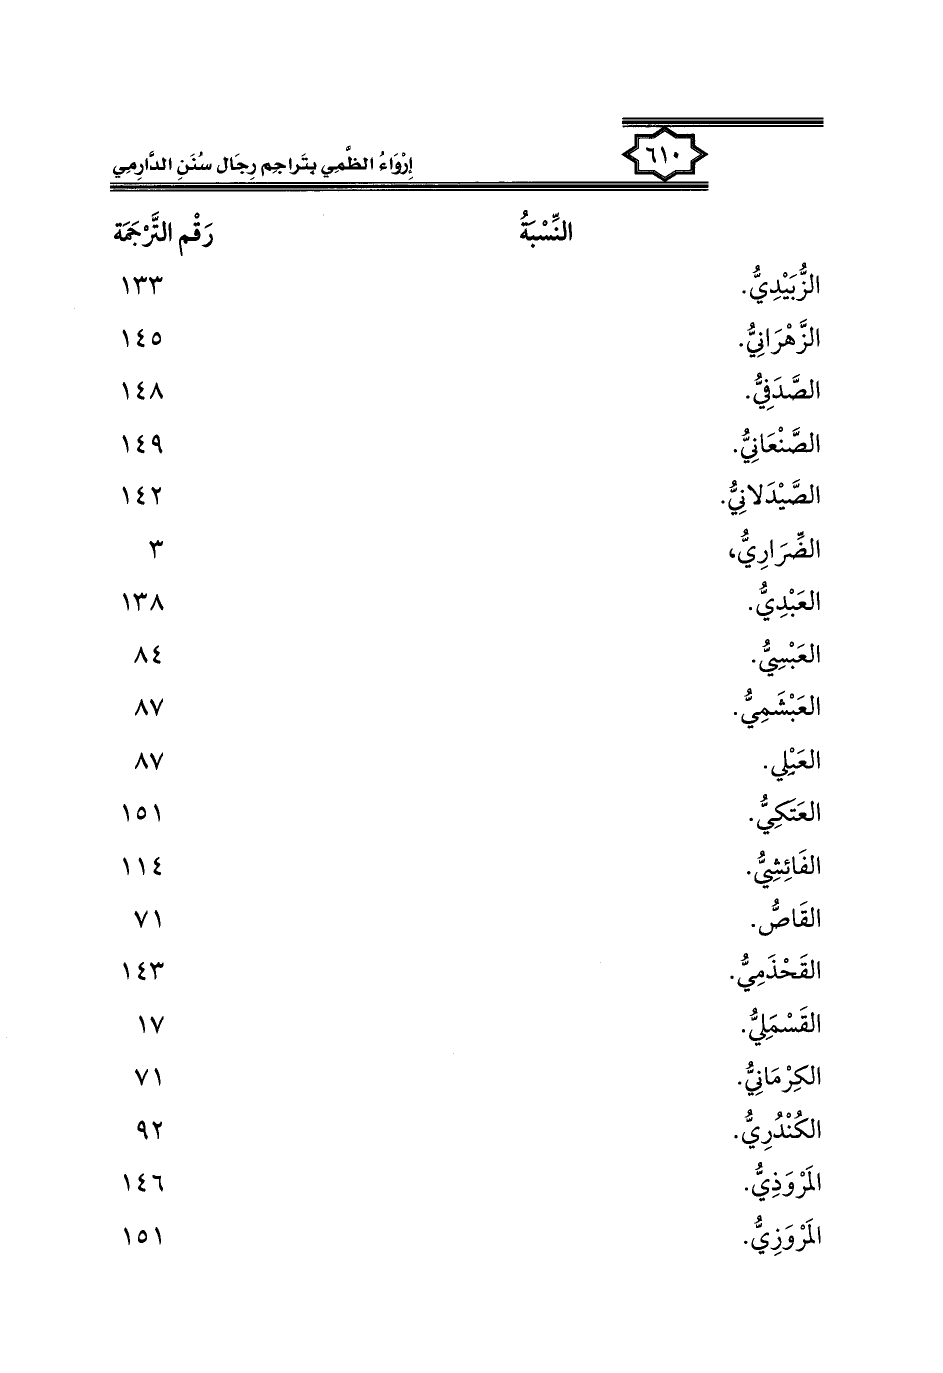 ٦١٠ إِرْوَاءُ الظَّمِي بِتَرَاجِمِ رِجَالِ سُنَنِ الدَّارِمِي
النِّسْبَةُ رَقْم التَّرْجَمَة
الزُّبَيْدِيُّ. ١٣٣
الزَّهْرَانِيُّ. ١٤٥
الصَّدَفِيُّ. ١٤٨
الصَّنْعَانِيُّ. ١٤٩
الصَّيْدَلانِيُّ. ١٤٢
الضِّرَارِيُّ، ٣
العَبْدِيُّ. ١٣٨
العَبْسِيُّ. ٨٤
العَبْشَمِيُّ. ٨٧
العَبْلِي. ٨٧
العَتَكِيُّ. ١٥١
الفَائِشِيُّ. ١١٤
القَاصُّ. ٧١
القَحْذَمِيُّ. ١٤٣
القَسْمَلِيُّ. ١٧
الكِرْمَانِيُّ. ٧١
الكُنْدُرِيُّ. ٩٢
المَرْوَذِيُّ. ١٤٦
المَرْوَزِيُّ. ١٥١